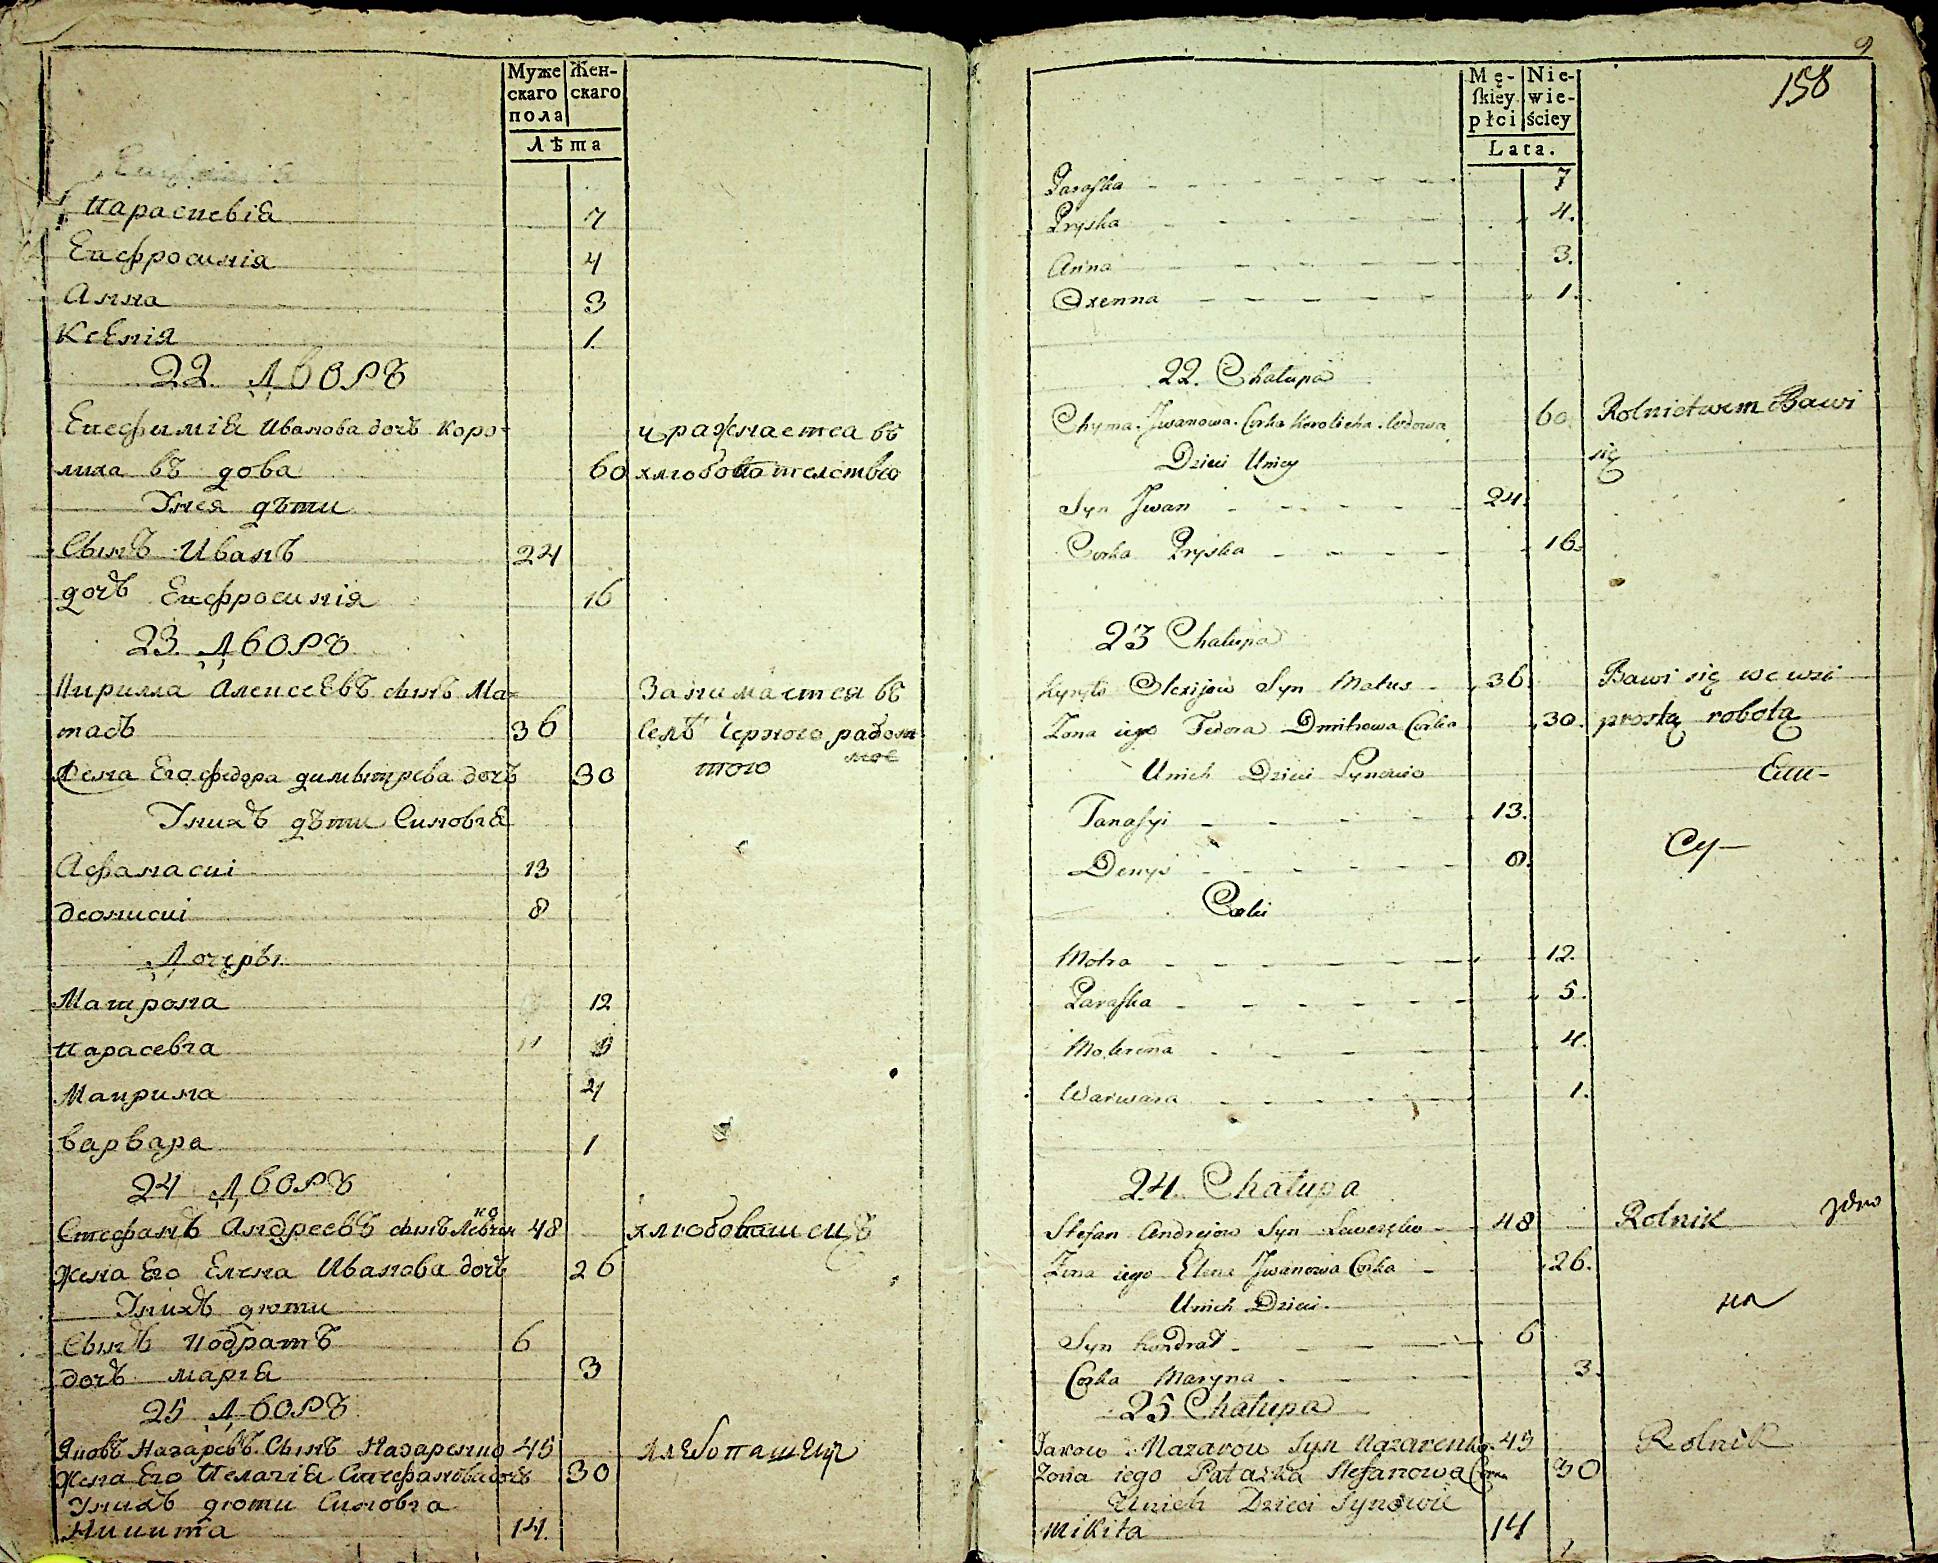 Муже
скаго
пола
Жен-
скаго
Лѣта
Параскевіа 7
Евфросинія 4
Анна 3
Ксенія 1.
22. Дворъ
Евфиміа Иванова дочь Коро-
лиха въ дова 60
упражняется въ
хлѣбопашествѣ
Унея дѣти
Сынъ Иванъ 24
дочь Евфросинія 16
23. Дворъ
Кирилла Алексеевъ сынъ Ма-
тасъ 36
Занимается въ
селѣ черною работ
тою
Жена Его федора димытрева дочь 30
Унихъ дѣти Синовіа
Афанаси 13
деониси 8
Дочеры
Матрона 12
Парасевіа 5
Маврина 4
варвара 1
24 Дворъ
Стефанъ Андреевъ сынъ 48
хлѣбопашецъ
жена Его Елена Иванова дочь 26
Унихъ дѣти
Сынъ Кодратъ 6
дочь маріа 3
25 Дворъ
Яковъ Назаревъ Сынъ Назаренко 45
Хлебопашецъ
Жена Его Пелагіа Стефанова дочь 30
Унихъ дѣти Синовіа
Никита 14.
9
158
Mę-
ſkiey
płci
Nie-
wie-
ściey
Lata.
Paraſka 7
Pryska 4.
Anna 3.
Oxenna 1.
22. Chałupa
Chyma Jwanowa Corka Korolicha wdowa 60.
Rolnictwem Bawi
się
Dzieci Uniey
Syn Jwan 24.
Corka Pryska 16.
23 Chałupa
Kyryło Olexijow Syn Matus 36.
Bawi się we wsi
Zona iego Fedora Dmitrowa Corka 30.
prostą robotą
Unich Dzieci Synowie
Tanaſyi 13.
Denys 8.
Су-
Corki
Motra 12.
Paraſka 5.
Mokrena 4.
Warwara 1.
24. Chałupa
Stefan Andrejow Syn 48
Rolnik
Zona iego Elena Jwanowa Corka 26.
Unich Dzieci.
Syn Kondrat 6
Corka Maryna 3.
25 Chałupa
Jakow Nazarow Syn Nazarenko 45
Rolnik
Zona iego Palażka Stefanowa Corka 30
Unich Dzieci Synowie
Mikita 14